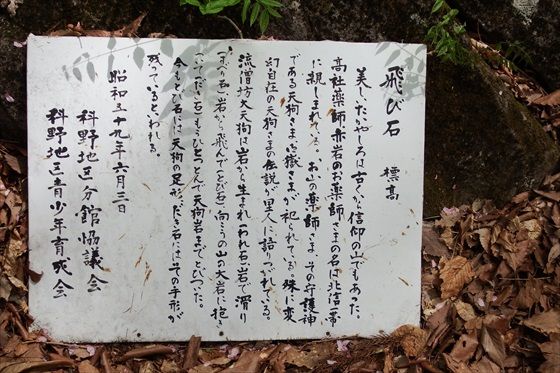 飛び石　標高
美しいたかやしろは古くから信仰の山でもあった。
高社薬師赤岩のお薬師さまの名は北信一帯
に親しまれている。お山の薬師さま、その守護神
である天狗さま、御嶽さまが祀られている。殊に変
幻自在の天狗さまの伝説が里人に語りつがれている。
流僧坊大天狗は石から生まれ（われ石）岩で滑り
（すべり石）岩から飛んで（とび石）向こうの山の大岩に抱き
（いだき石）もうひとつとんで天狗岩までとびついた。
今もとび石には天狗の足形、だき石にはその手形が
残っているといわれる。
昭和五十九年六月三日
科野地区分館協議会
科野地区青少年育成会